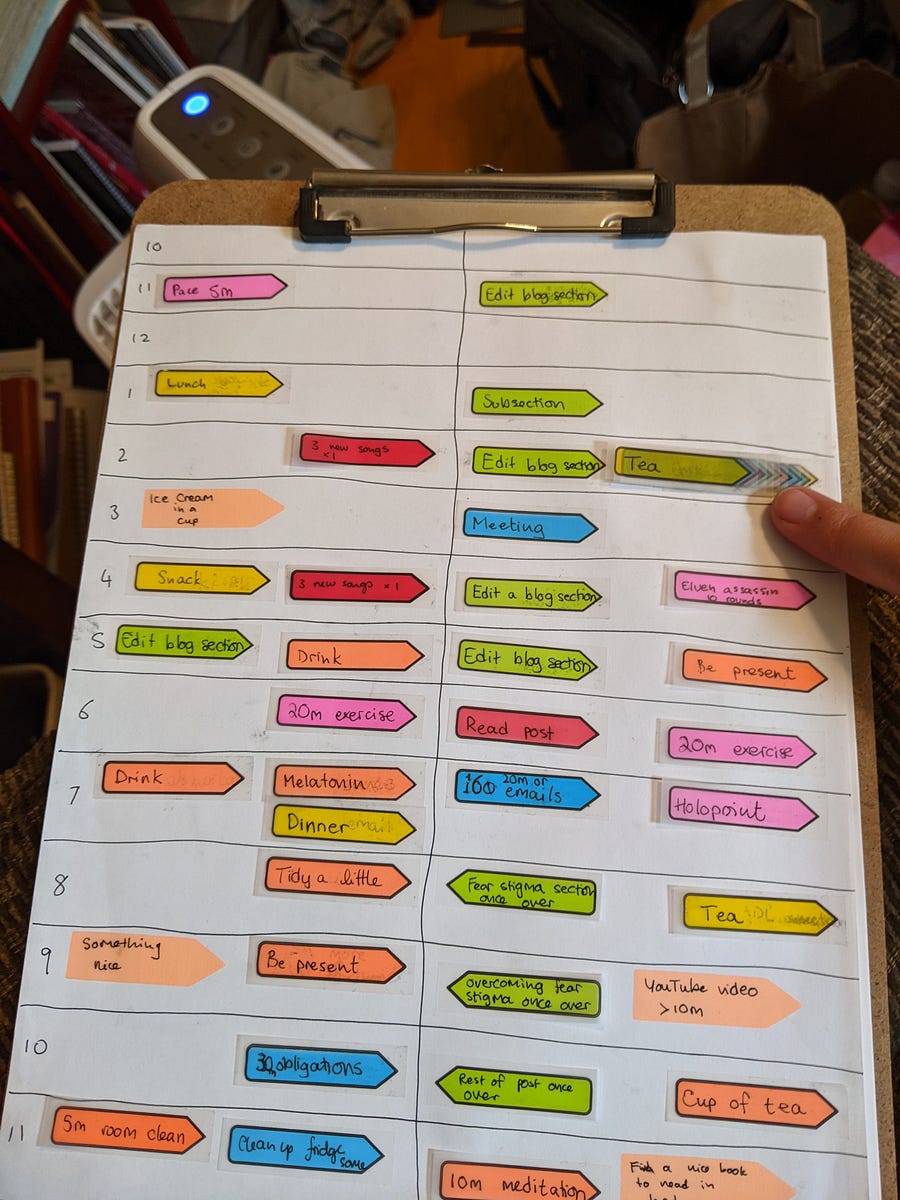 10
11
Pace 5m
Edit blog section
12
1
Lunch
Subsection
2
3 new songs
x1
Edit blog section
Tea
3
Ice Cream
in a
cup
Meeting
4
Snack
3 new songs x1
Edit a blog section
Elven assassin
10 rounds
5
Edit blog section
Drink
Edit blog section
Be present
6
20m exercise
Read post
20m exercise
7
Drink
Melatonin
Dinner
20m or
160 emails
Holopoint
8
Tidy a little
Fear stigma section
once over
Tea
9
Something
nice
Be present
overcoming fear
stigma once over
YouTube video
>10m
10
30m obligations
Rest of post once
over
Cup of tea
11
5m room clean
Clean up fridge
some
10m meditation
Find a nice book
to read in